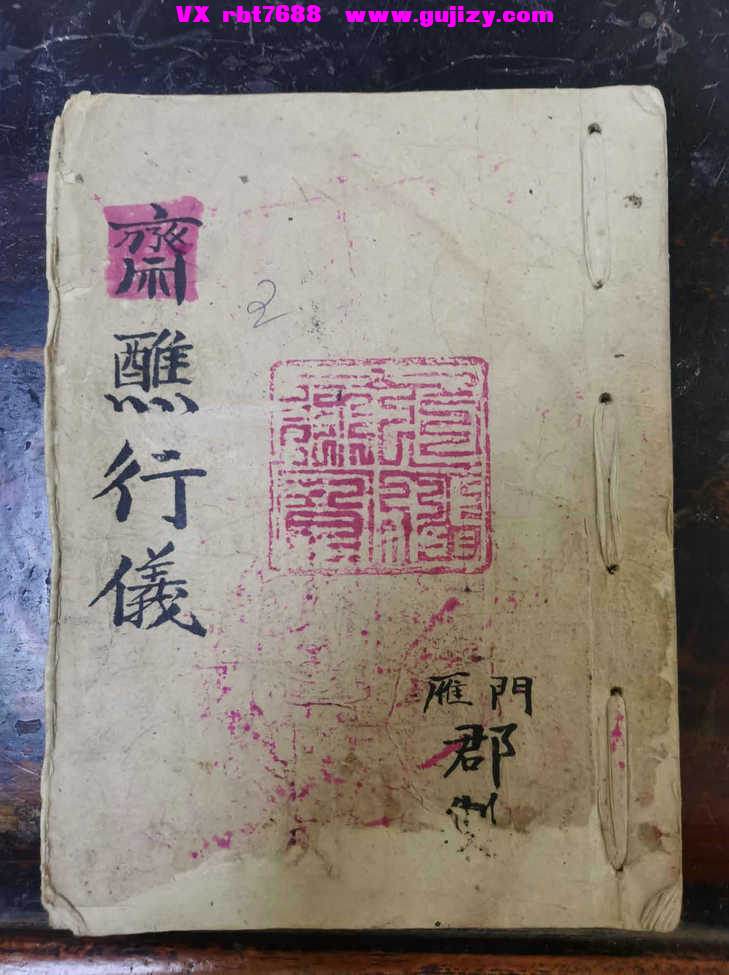 VX rbt7688 www.gujizy.com
齋醮行儀
2
雁門
郡